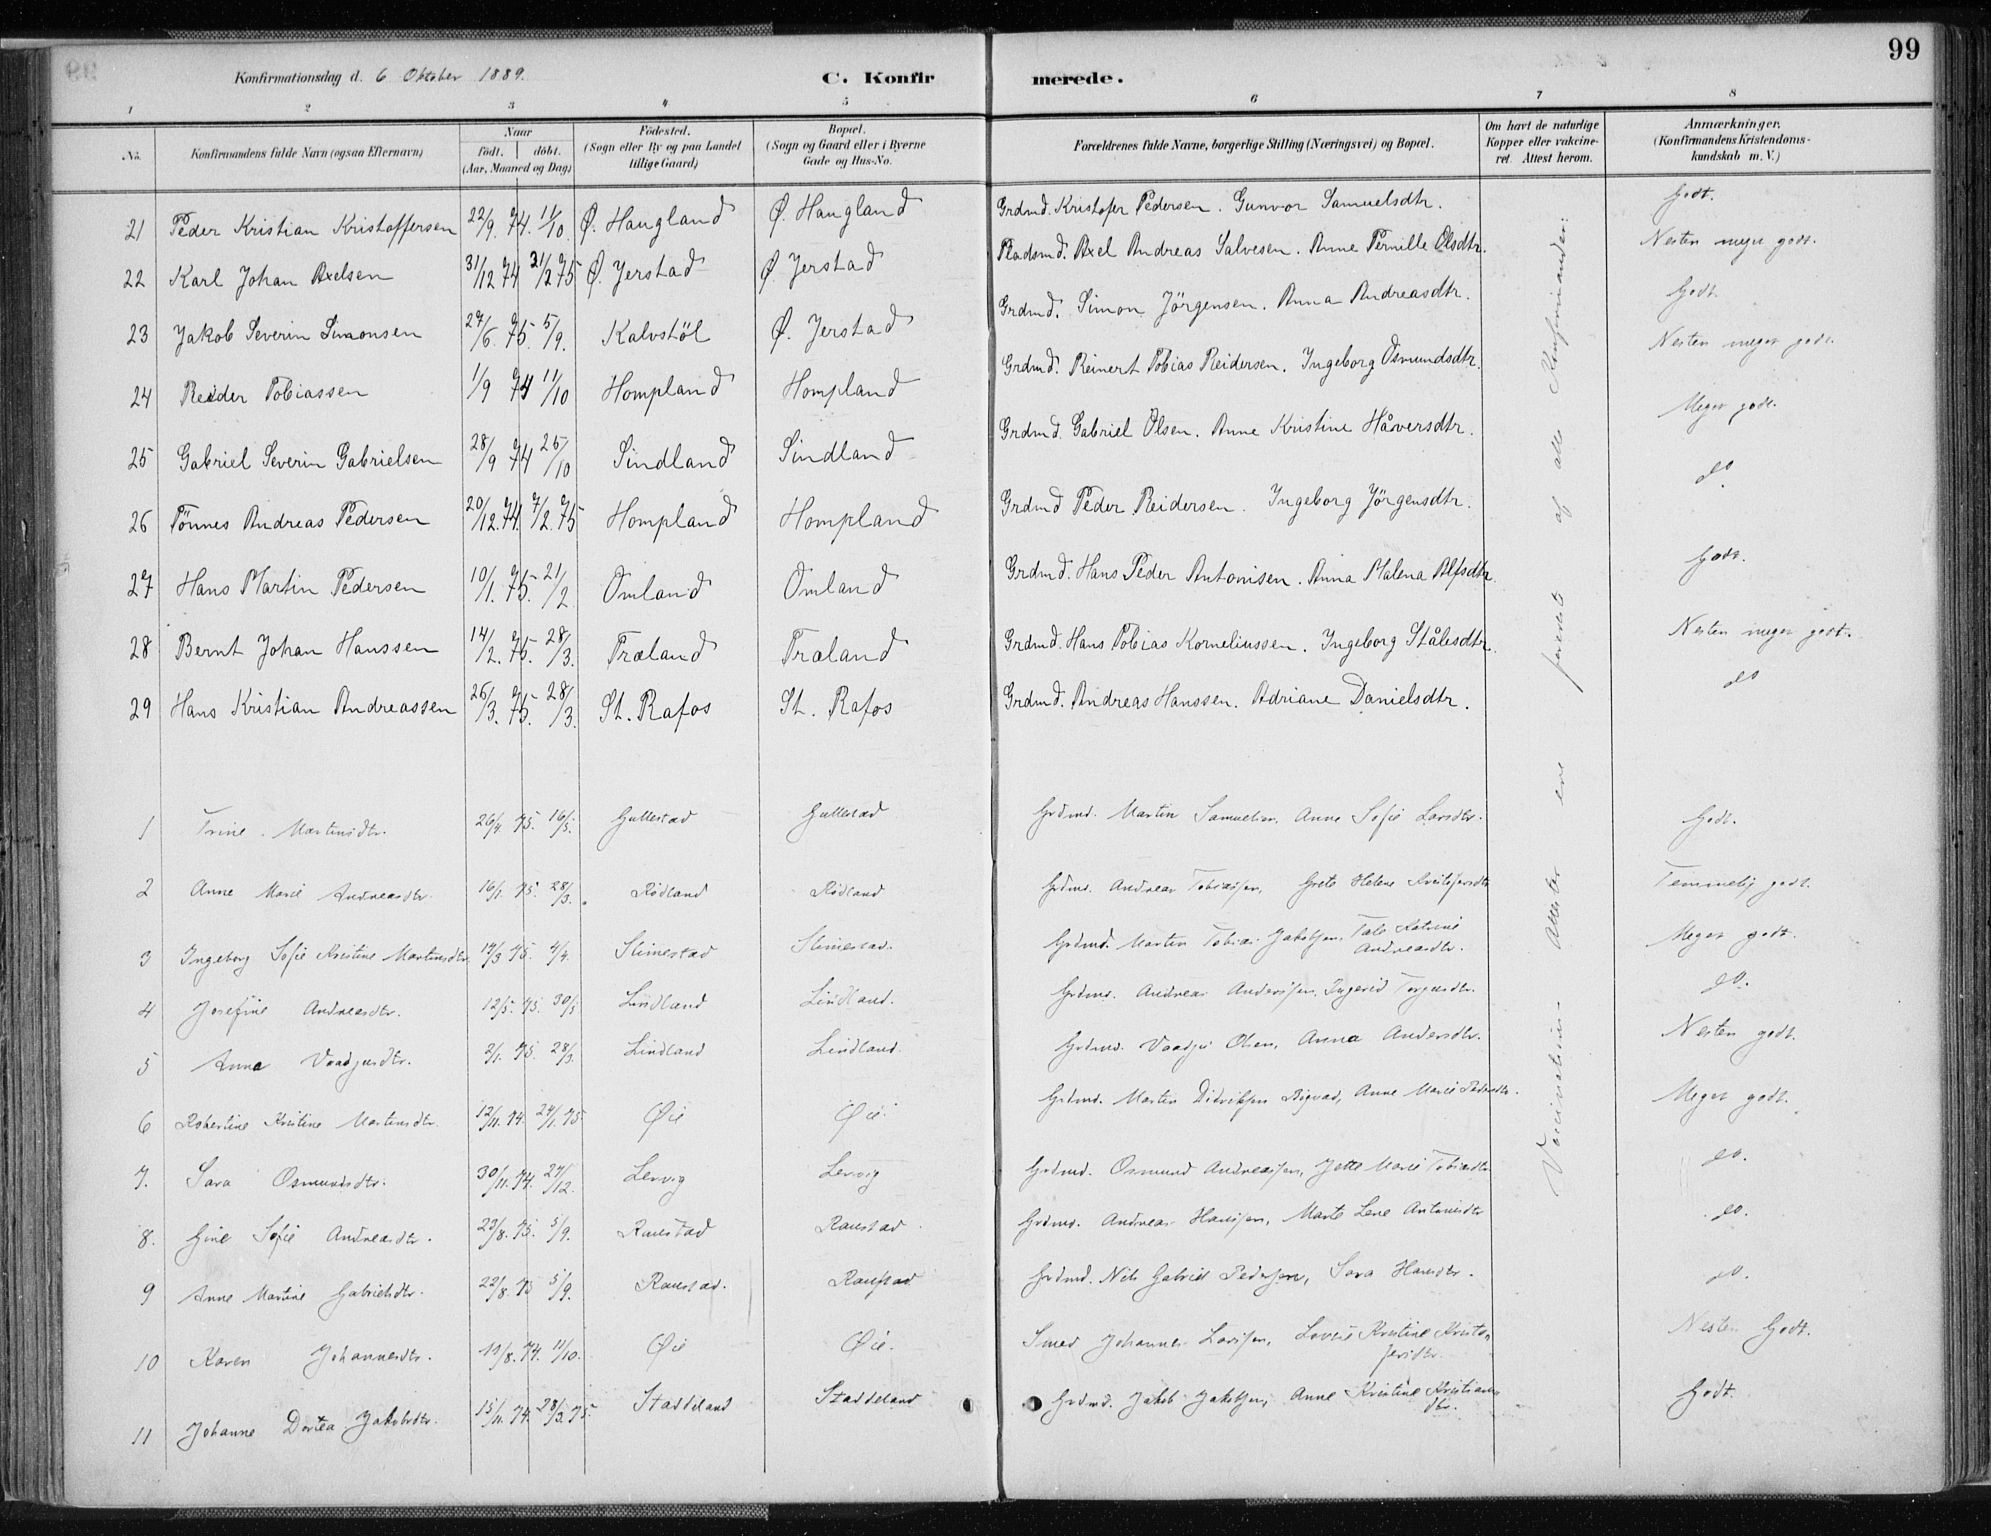 99
Konfirmationsdag d. 6 Oktober 1889. C. Konfirmerede.
1 2 3 4 5 6 7 8
No. Konfirmandens fulde Navn (ogsaa Efternavn) Naar født. døbt. (Aar, Maaned og Dag) Fødested. (Sogn eller By og paa Landet tillige Gaard) Bopæl. (Sogn og Gaard eller i Byerne Gade og Hus-No. Forældrenes fulde Navne, borgerlige Stilling (Næringsvei) og Bopæl. Om havt de naturlige Kopper eller vakcineret. Attest herom. Anmærkninger. (Konfirmandens Kristendomskundskab m. V.)
21 Peder Kristian Kristoffersen 22/9. 74. 11/10. Ø. Haugland Ø. Haugland Grdmd. Kristofer Pedersen. Gunvor Samuelsdtr. Godt.
22 Karl Johan Axelsen 31/12 74 21/2 75 Ø. Jerstad Ø. Jerstad Pladsmd. Axel Andreas Salvesen. Anne Pernille Olsdtr. Nesten meget godt.
23 Jakob Severin Simonsen 27/6. 75. 5/9. Kalvstöl Ø. Jerstad Grdmd. Simon Jörgensen. Anna Andreasdtr. Godt.
24 Reider Tobiassen 1/9 74 11/10 Hompland Hompland Grdmd. Reinert Tobias Reidersen. Ingeborg Osmundsdtr. Nesten meget godt.
25 Gabriel Severin Gabrielsen 28/9 74 25/10 Sindland Sindland Grdmd. Gabriel Olsen. Anne Kristine Håversdtr. Meget godt.
26 Tönnes Andreas Pedersen 20/12. 74. 7/2. 75 Hompland Hompland Grdmd Peder Reidersen. Ingeborg Jörgensdtr. do.
27 Hans Martin Pedersen 10/1. 75. 21/2 Omland Omland Grdmd. Hans Peder Antonisen. Anna Malena Alfsdtr. Godt.
28 Bernt Johan Hanssen 14/2. 75. 28/3. Træland Træland Grdmd. Hans Tobias Korneliussen. Ingeborg Stålesdtr. Nesten meget godt.
29 Hans Kristian Andreassen 26/3. 75. 28/3. St. Rafos St. Rafos Grdmd. Andreas Hanssen. Adriane Danielsdtr. do
1 Trine Martinsdtr. 26/4. 75. 16/5. Gullestad Gullestad Grdmd. Martin Samuelsen, Anne Sofie Larsdtr. Godt.
2 Anne Marie Andreasdtr. 16/1. 75. 28/3. Rødland Rødland Grdmd. Andreas Tobiassen, Grete Helene Kristofersdtr Temmelig godt.
3 Ingeborg Sofie Kristine Martinsdtr. 14/3 75. 4/4. Stimestad Stimestad. Grdmd. Martin Tobias Jakobsen, Tale Katrine Andreasdtr. Meget godt.
4 Josefine Andreasdtr. 12/5. 75. 30/5 Lindland Lindland. Grdmd. Andreas Andersen, Ingerid Torjusdtr. do.
5 Anna Vaadjusdtr. 2/1. 75. 28/3. Lindland Lindland. Grdmd. Vaadju Olsen, Anna Andersdtr. Nesten godt.
6 Robertine Kristine Martinsdtr. 12/11. 74. 24/1. 75 Øie Øie. Grdmd. Martin Didriksen, Anne Marie Pedersdtr. Meget godt.
7. Sara Osmundsdtr. 30/11. 74. 27/12. Lervig Lervig Grdmd. Osmund Andreassen, Jette Marie Tobiasdtr do.
8. Gine Sofie Andreasdtr. 23/8. 75. 5/9. Raustad Raustad Grdmd. Andreas Hanssen, Marte Lene Antonsdtr do.
9 Anne Martine Gabrielsdtr. 22/8. 75 5/9. Raustad. Raustad Grdmd. Nils Gabriel Pedersen, Sara Hansdtr. do.
10 Karen Johannesdtr. 19/8. 74. 11/10. Øie Øie. Smed Johannes Larsen, Lovise Kristine Kristofersdtr. Nesten Godt.
11 Johanne Dortea Jakobsdtr. 15/11. 74. 28/3. 75. Staddeland Staddeland Grdmd. Jakob Jakobsen, Anne Kristine Kristiansdtr. Godt.
Vaccinations-Attester ere leverede af alle Konfirmander.